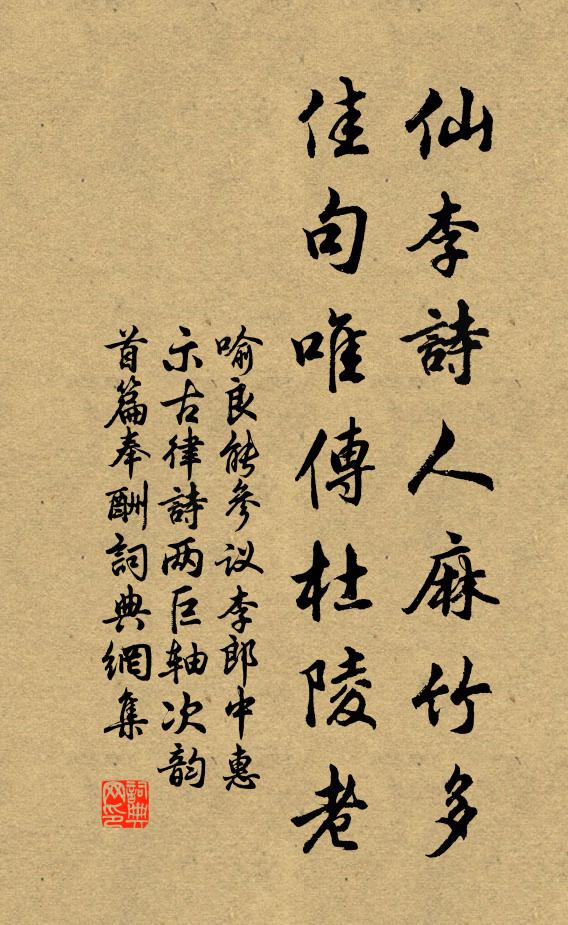 仙李詩人麻竹多
佳句唯傳杜陵老
喻良能參议李郎中惠
示古律詩两巨轴次韵
首篇奉酬詞典網集
詞典
网印